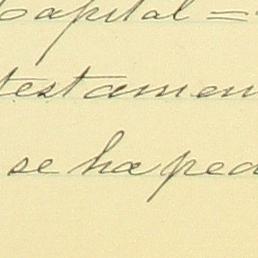 Capital =
testamen
se ha ped